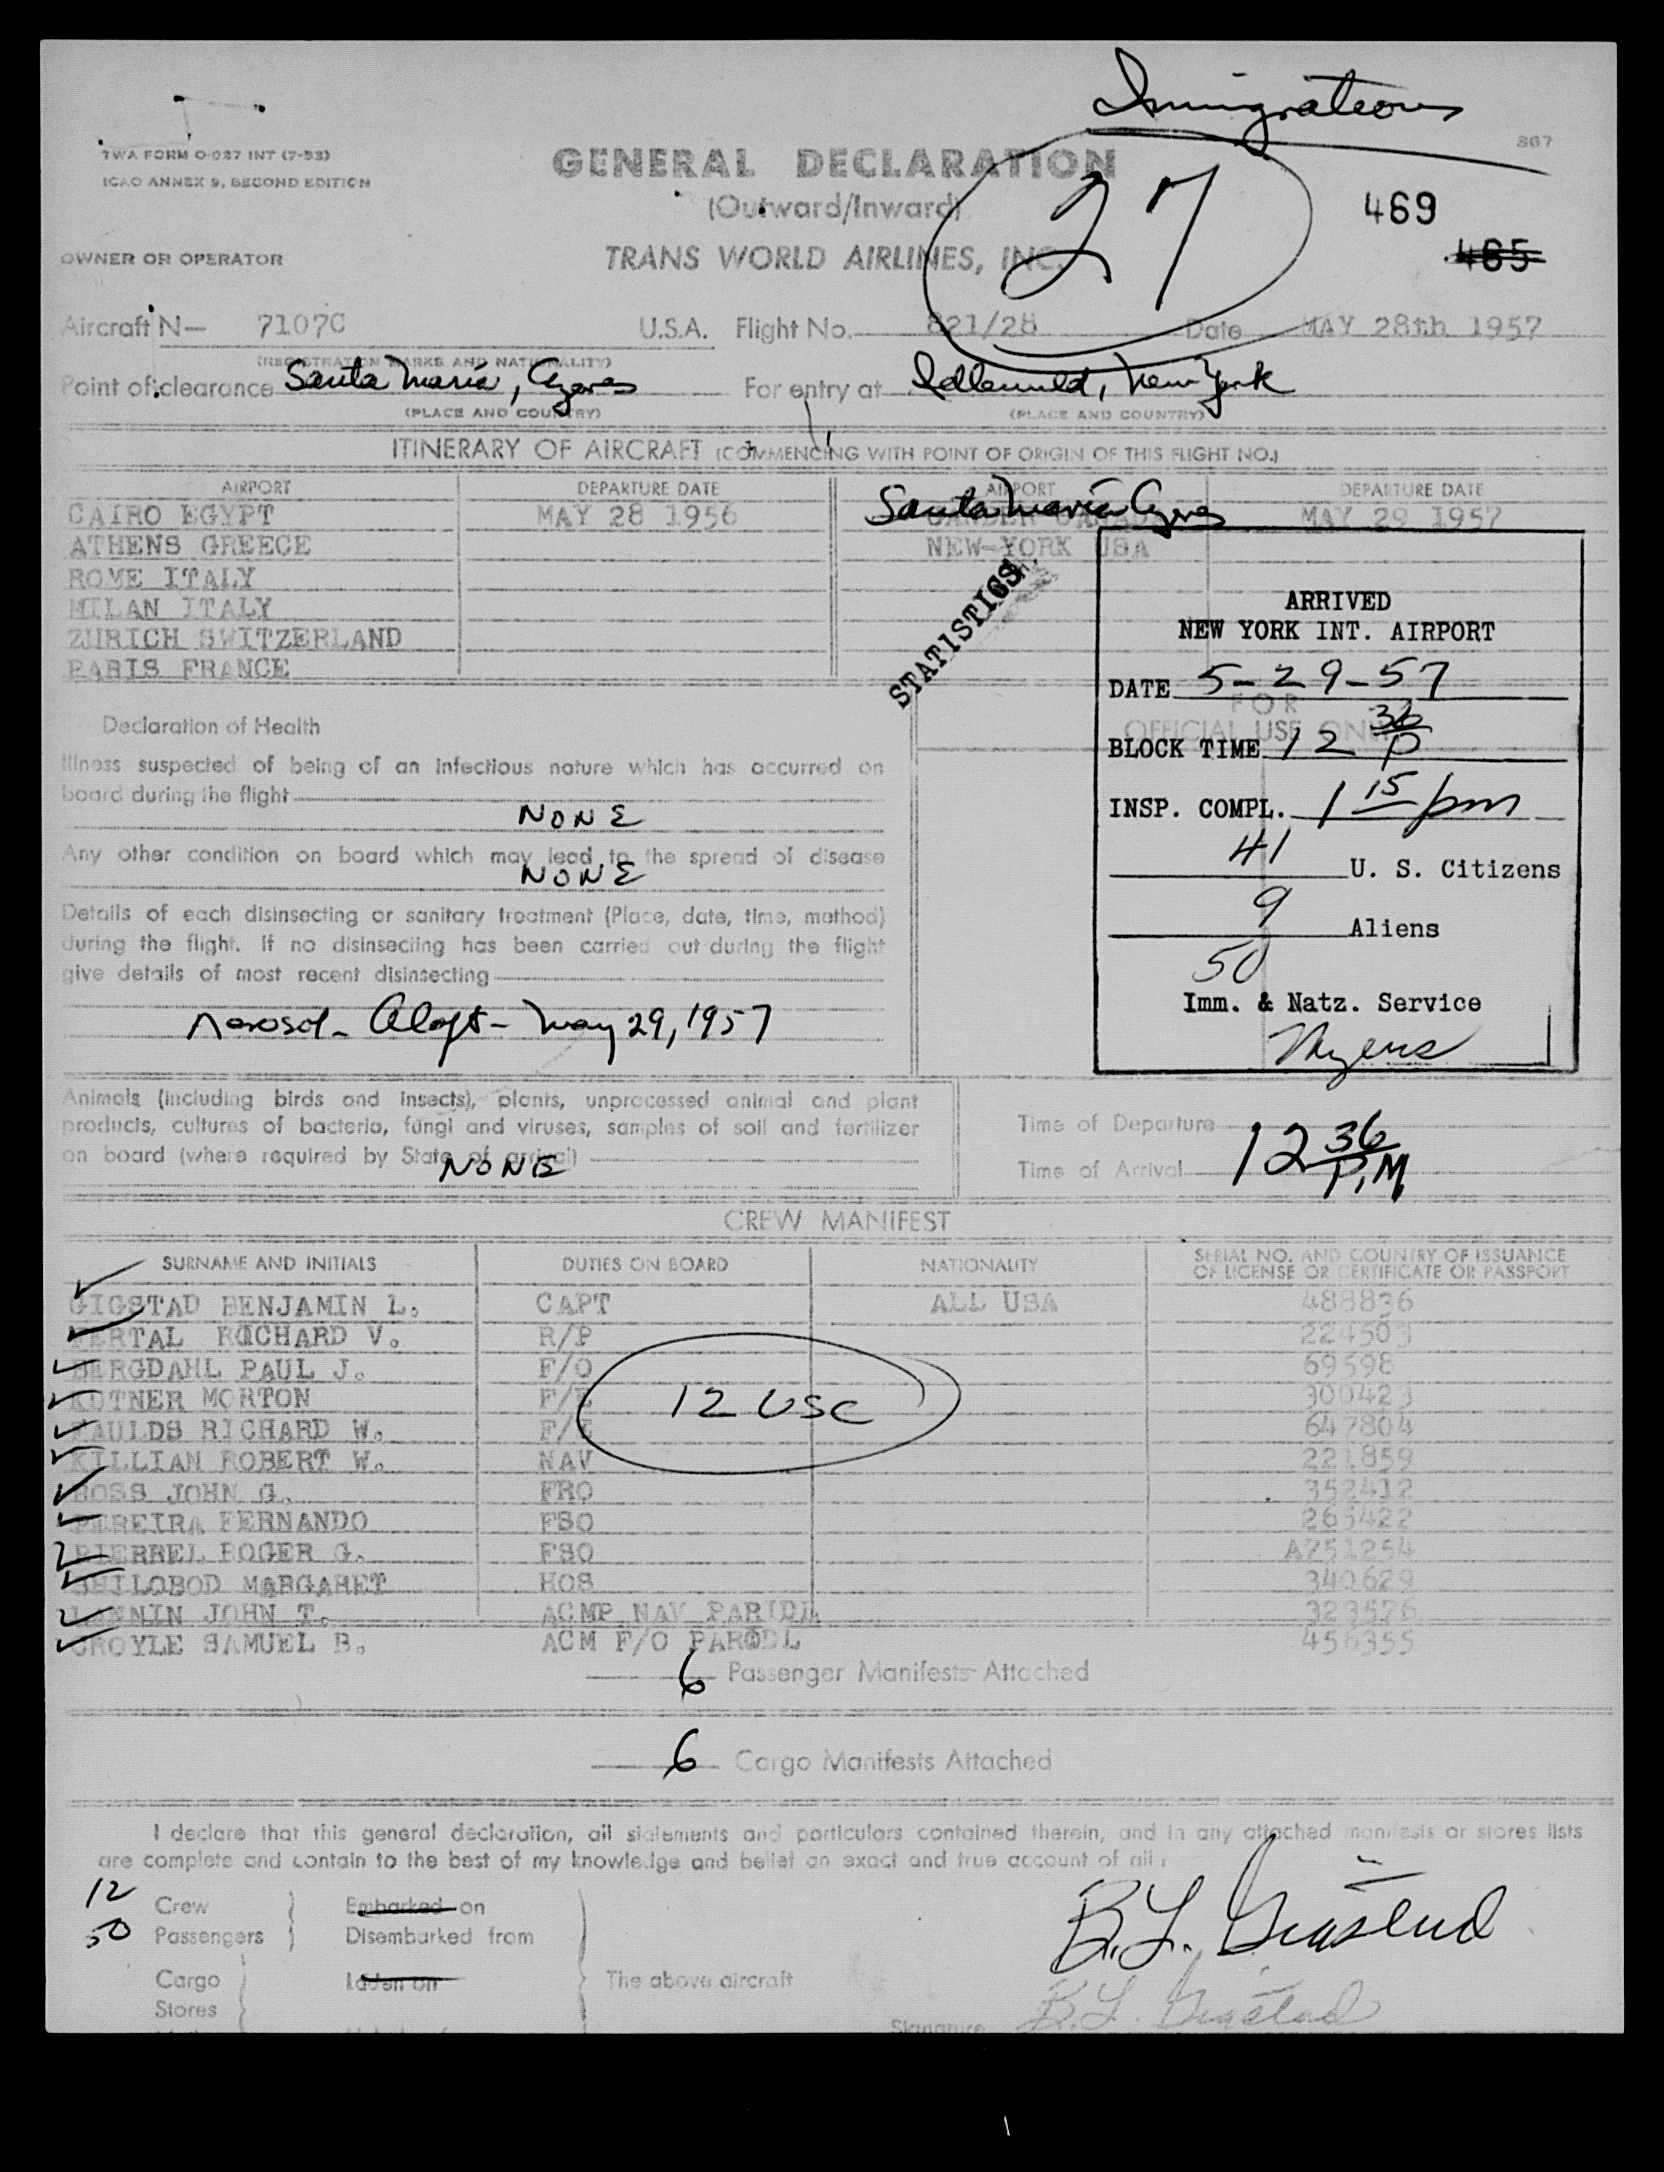 Immigration
TWA FORM O-027 INT (7-53)
ICAO ANNEX 9, SECOND EDITION
867
GENERAL DECLARATION
(Outward/Inward)
27
469
465
OWNER OR OPERATOR
TRANS WORLD AIRLINES, INC.
Aircraft N- 7107C U.S.A. Flight No. 821/28 Date MAY 28th 1957
(REGISTRATION MARKS AND NATIONALITY)
Point of clearance Santa Maria, Azores For entry at Idlewild, New York
(PLACE AND COUNTRY) (PLACE AND COUNTRY)
ITINERARY OF AIRCRAFT (COMMENCING WITH POINT OF ORIGIN OF THIS FLIGHT NO.)
AIRPORT DEPARTURE DATE AIRPORT DEPARTURE DATE
CAIRO EGYPT MAY 28 1956 Santa Maria Azores GANDER CANADA MAY 29 1957
ATHENS GREECE NEW-YORK USA
ROME ITALY
MILAN ITALY
ZURICH SWITZERLAND
PARIS FRANCE
STATISTICS
ARRIVED
NEW YORK INT. AIRPORT
DATE 5-29-57
FOR
OFFICIAL USE ONLY
BLOCK TIME 12 36 P
INSP. COMPL. 1 15 pm
41 U. S. Citizens
9 Aliens
50
Imm. & Natz. Service
Myers
Declaration of Health
Illness suspected of being of an infectious nature which has occurred on
board during the flight
NONE
Any other condition on board which may lead to the spread of disease
NONE
Details of each disinsecting or sanitary treatment (Place, date, time, method)
during the flight. If no disinsecting has been carried out during the flight
give details of most recent disinsecting
Aerosol - Aloft - May 29, 1957
Animals (including birds and insects), plants, unprocessed animal and plant
products, cultures of bacteria, fungi and viruses, samples of soil and fertilizer
on board (where required by State of arrival)
NONE
Time of Departure
Time of Arrival 12 36 P.M
CREW MANIFEST
SURNAME AND INITIALS DUTIES ON BOARD NATIONALITY SERIAL NO. AND COUNTRY OF ISSUANCE
OF LICENSE OR CERTIFICATE OR PASSPORT
GIGSTAD BENJAMIN L. CAPT ALL USA 488836
FERTAL RICHARD V. R/P 224503
BERGDAHL PAUL J. F/O 69598
KUTNER MORTON F/E 300423
FAULDS RICHARD W. F/E 647804
12 USC
KILLIAN ROBERT W. NAV 221859
ROSS JOHN G. FRO 352412
PEREIRA FERNANDO FSO 265422
PIERREL ROGER G. FSO A751254
SHILOBOD MARGARET HOS 340629
LANNIN JOHN T. ACMP NAV PARIDL 323576
CROYLE SAMUEL B. ACM F/O PARODL 456355
6 Passenger Manifests Attached
6 Cargo Manifests Attached
I declare that this general declaration, all statements and particulars contained therein, and in any attached manifests or stores lists
are complete and contain to the best of my knowledge and belief an exact and true account of all:
12 Crew Embarked on
50 Passengers Disembarked from
Cargo Laden on The above aircraft
Stores
B.L. Gigstad
Signature B.L. Gigstad